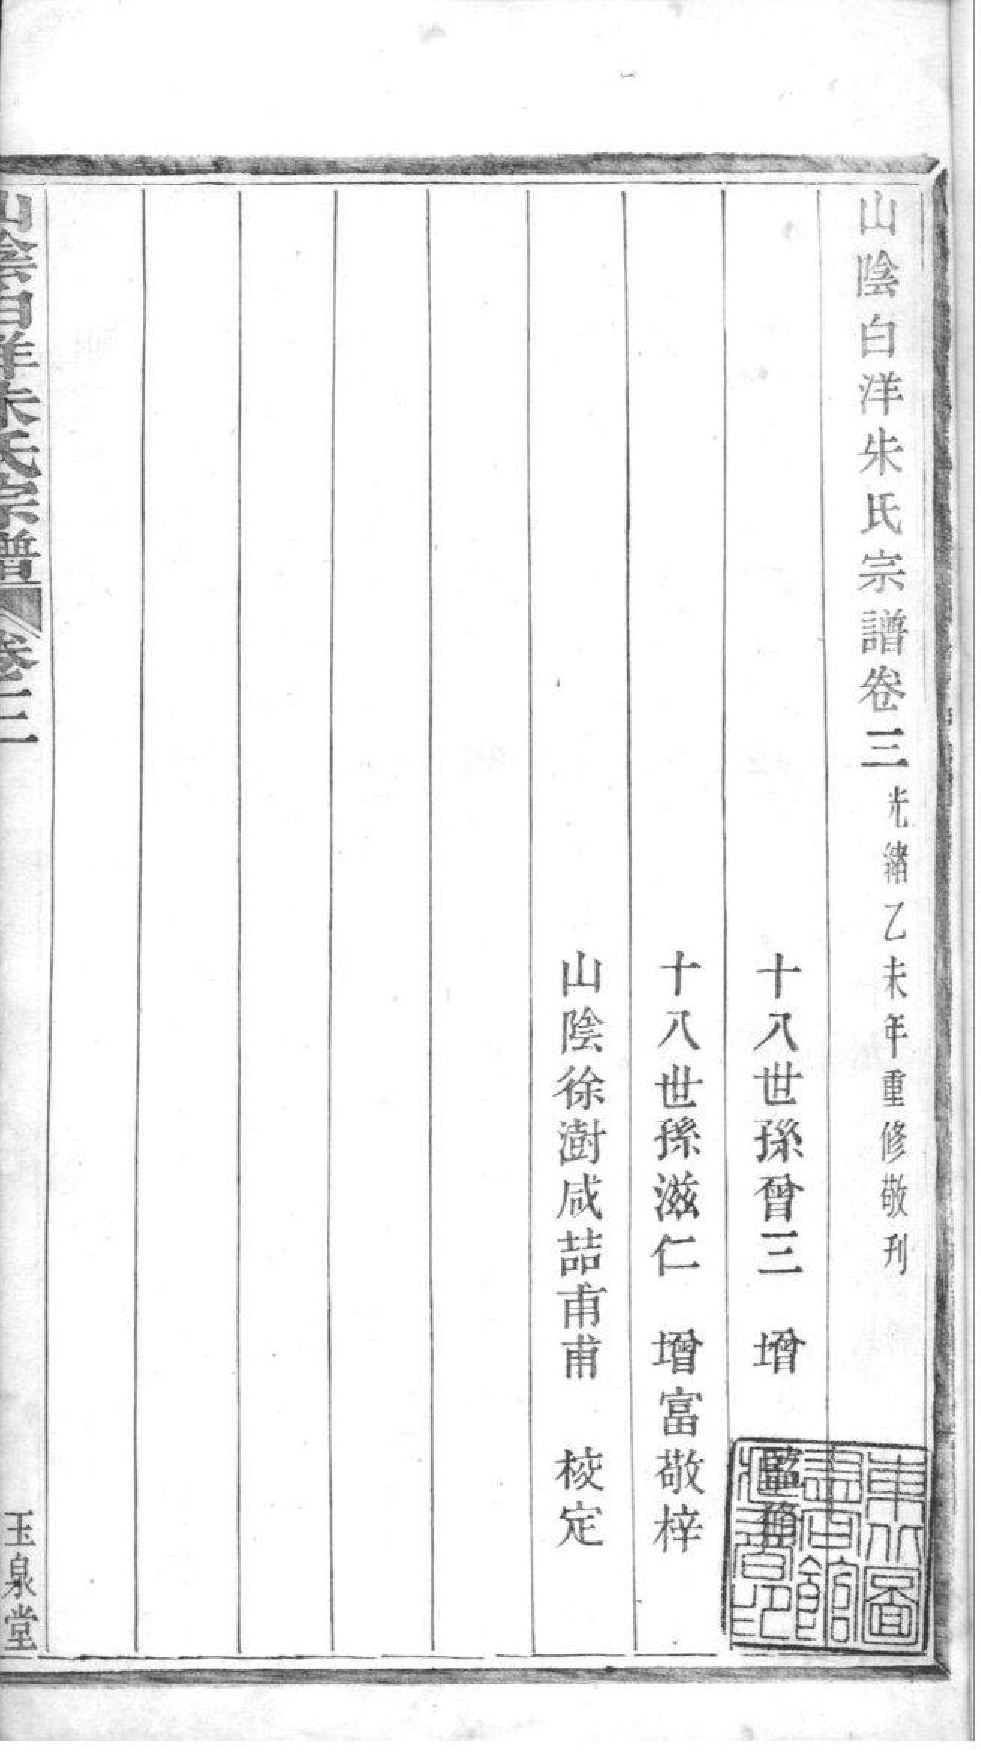 山陰白洋朱氏宗譜卷三 光緒乙未年重修敬刊
十八世孫曾三 增 監修
十八世孫滋仁 增富敬梓
山陰徐澍咸喆甫甫 校定
山陰白洋朱氏宗譜 卷三
玉泉堂
東北圖書館藏書印